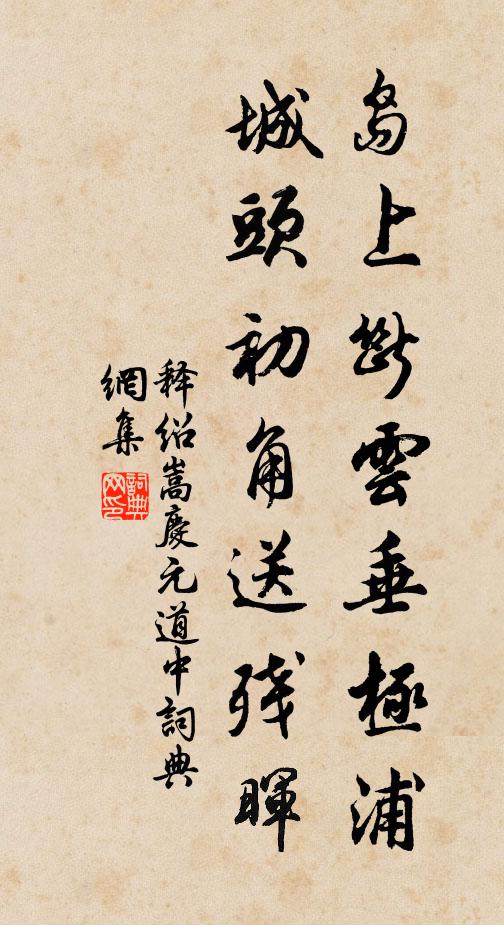 島上斷雲垂極浦
城頭初角送殘暉
释紹嵩慶元道中詞典
網集
詞典
网印